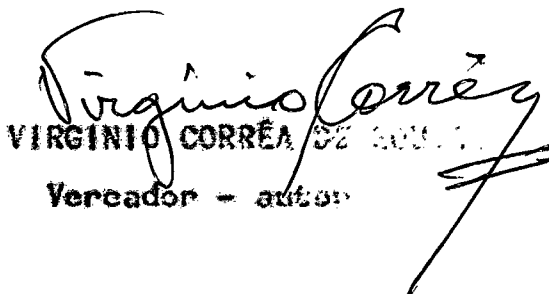 Virginio Corrêa
VIRGINIO CORRÊA DE
Vereador - autor